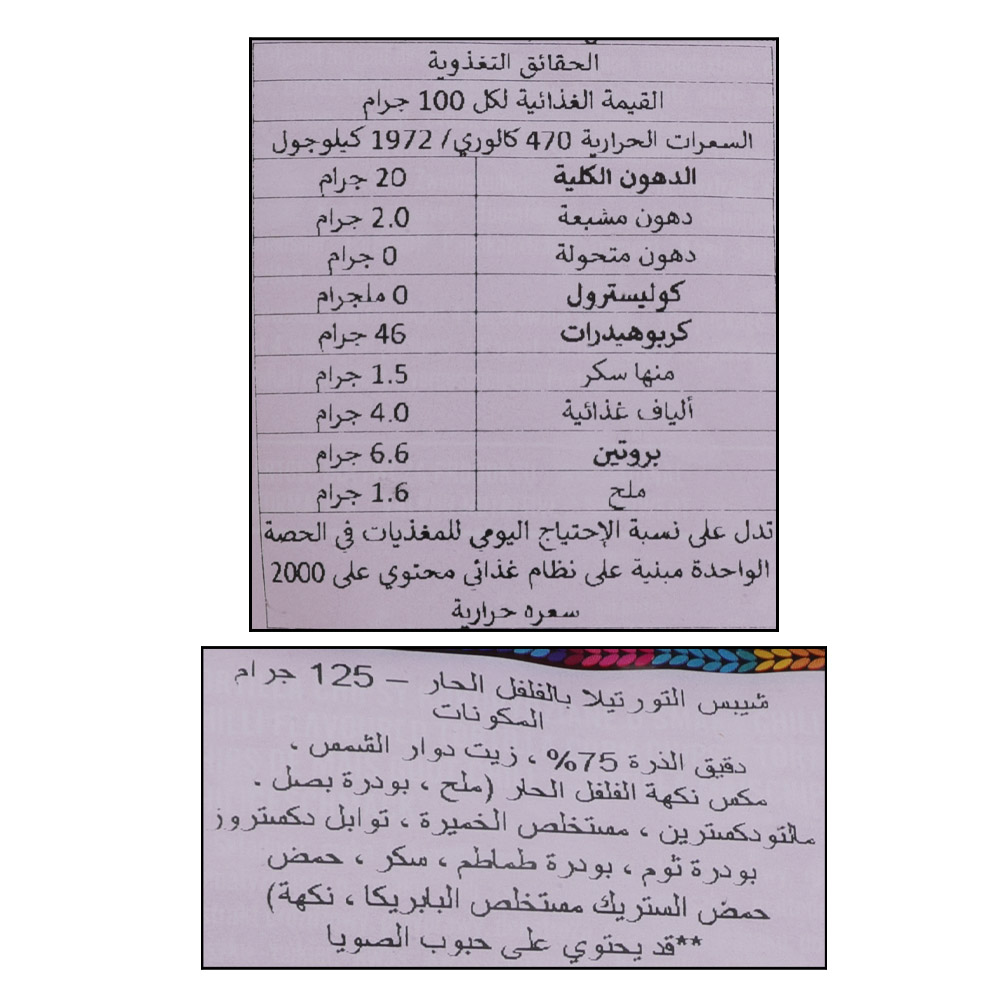 الحقائق التغذوية
القيمة الغذائية لكل 100 جرام
السعرات الحرارية 470 كالوري/ 1972 كيلوجول
الدهون الكلية 20 جرام
دهون مشبعة 2.0 جرام
دهون متحولة 0 جرام
كوليسترول 0 ملجرام
كربوهيدرات 46 جرام
منها سكر 1.5 جرام
ألياف غذائية 4.0 جرام
بروتين 6.6 جرام
ملح 1.6 جرام
تدل على نسبة الإحتياج اليومي للمغذيات في الحصة
الواحدة مبنية على نظام غذائي محتوي على 2000
سعره حرارية
شيبس التورتيلا بالفلفل الحار – 125 جرام
المكونات
دقيق الذرة 75% ، زيت دوار الشمس ،
مكس نكهة الفلفل الحار (ملح ، بودرة بصل .
مالتودكسترين ، مستخلص الخميرة ، توابل دكستروز
بودرة ثوم ، بودرة طماطم ، سكر ، حمض
حمض الستريك مستخلص البابريكا ، نكهة)
**قد يحتوي على حبوب الصويا